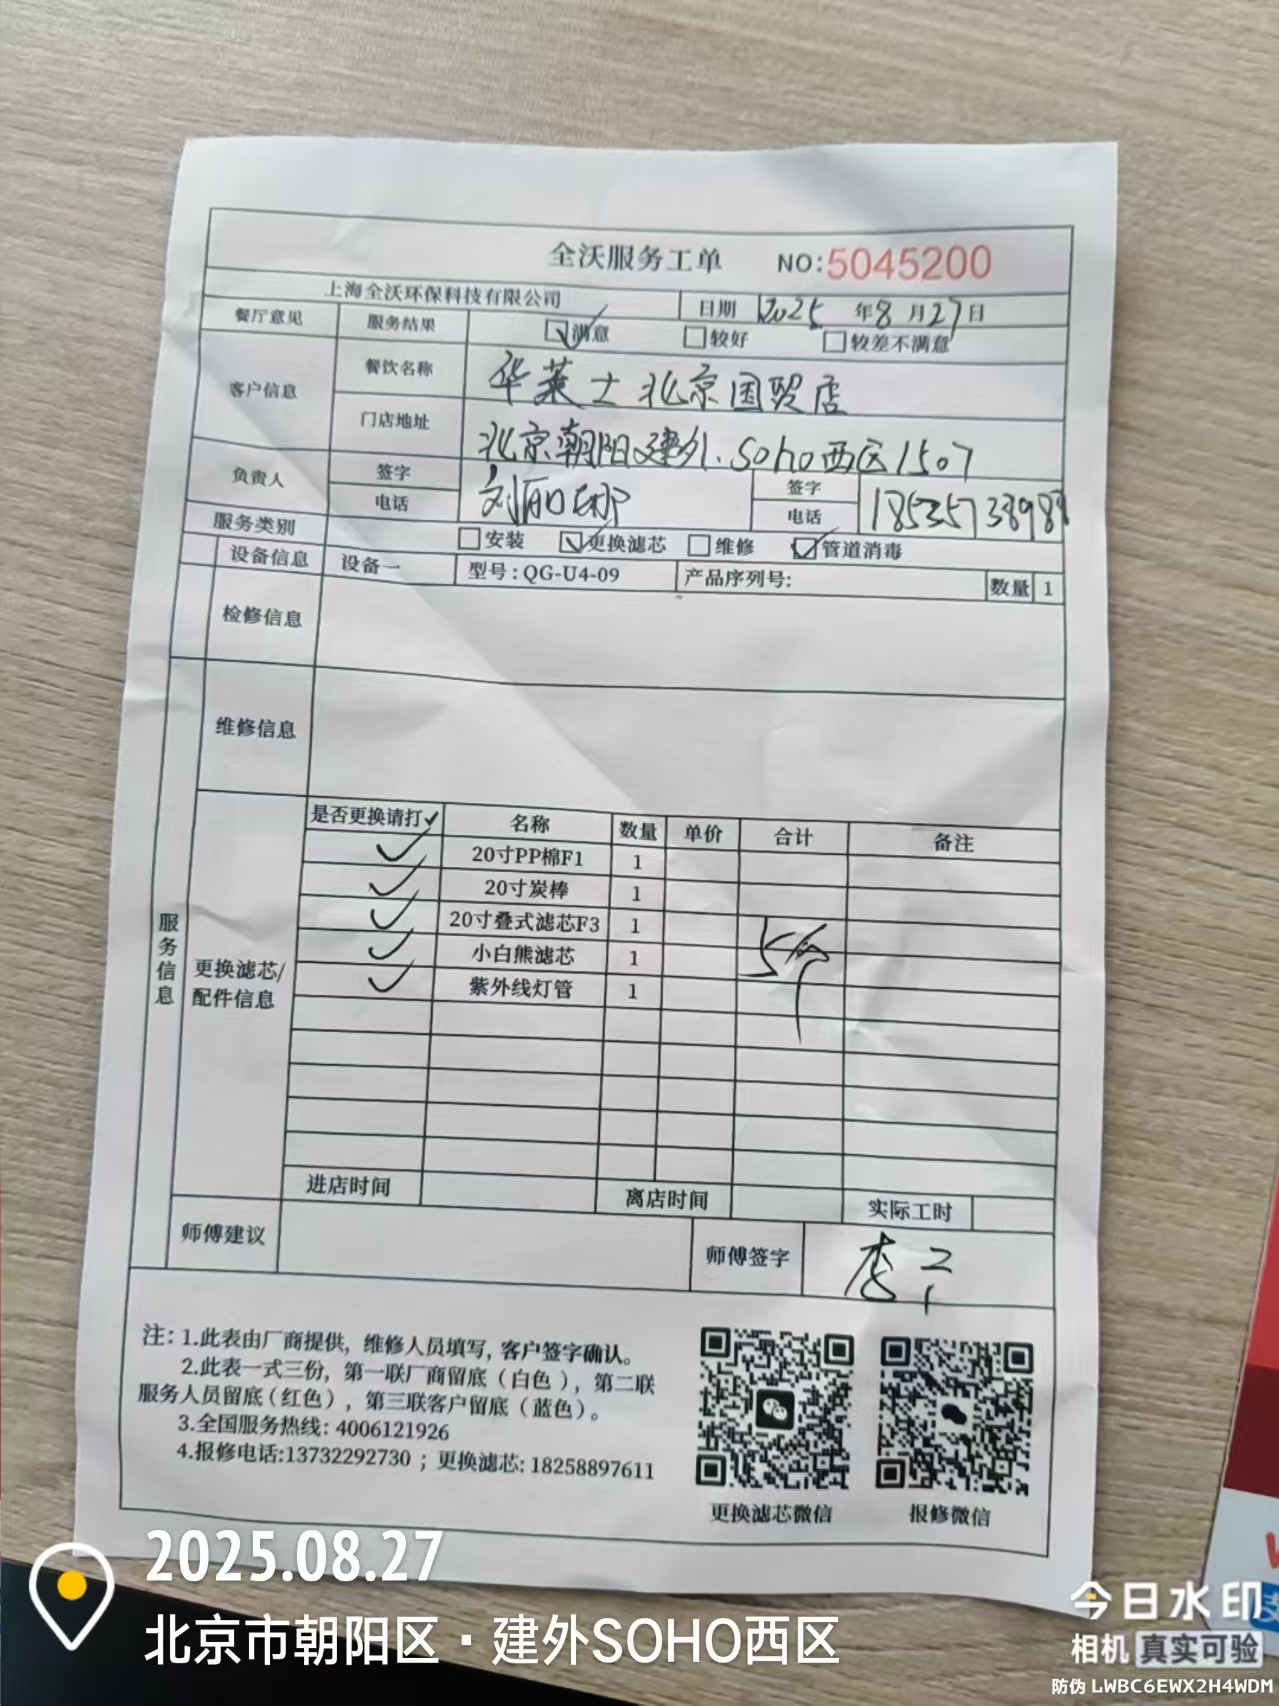 全沃服务工单 NO:5045200
上海全沃环保科技有限公司 日期 2025 年 8 月 27 日
餐厅意见 服务结果 ☑满意 □较好 □较差不满意
客户信息 餐饮名称 华莱士北京国贸店
门店地址 北京朝阳建外.Soho西区1507
负责人 签字 刘丽娜 签字
电话 电话
服务类别 □安装 ☑更换滤芯 □维修 ☑管道消毒
设备信息 设备一 型号:QG-U4-09 产品序列号: 数量 1
检修信息
维修信息
服务信息
更换滤芯/
配件信息
是否更换请打✓ 名称 数量 单价 合计 备注
✓ 20寸PP棉F1 1
✓ 20寸炭棒 1
✓ 20寸叠式滤芯F3 1
✓ 小白熊滤芯 1
✓ 紫外线灯管 1
进店时间 离店时间 实际工时
师傅建议 师傅签字 李
注: 1.此表由厂商提供, 维修人员填写, 客户签字确认。
2.此表一式三份, 第一联厂商留底(白色), 第二联
服务人员留底(红色), 第三联客户留底(蓝色)。
3.全国服务热线: 4006121926
4.报修电话:13732292730 ; 更换滤芯: 18258897611
更换滤芯微信 报修微信
2025.08.27
北京市朝阳区·建外SOHO西区
今日水印
相机 真实可验
防伪 LWBC6EWX2H4WDM